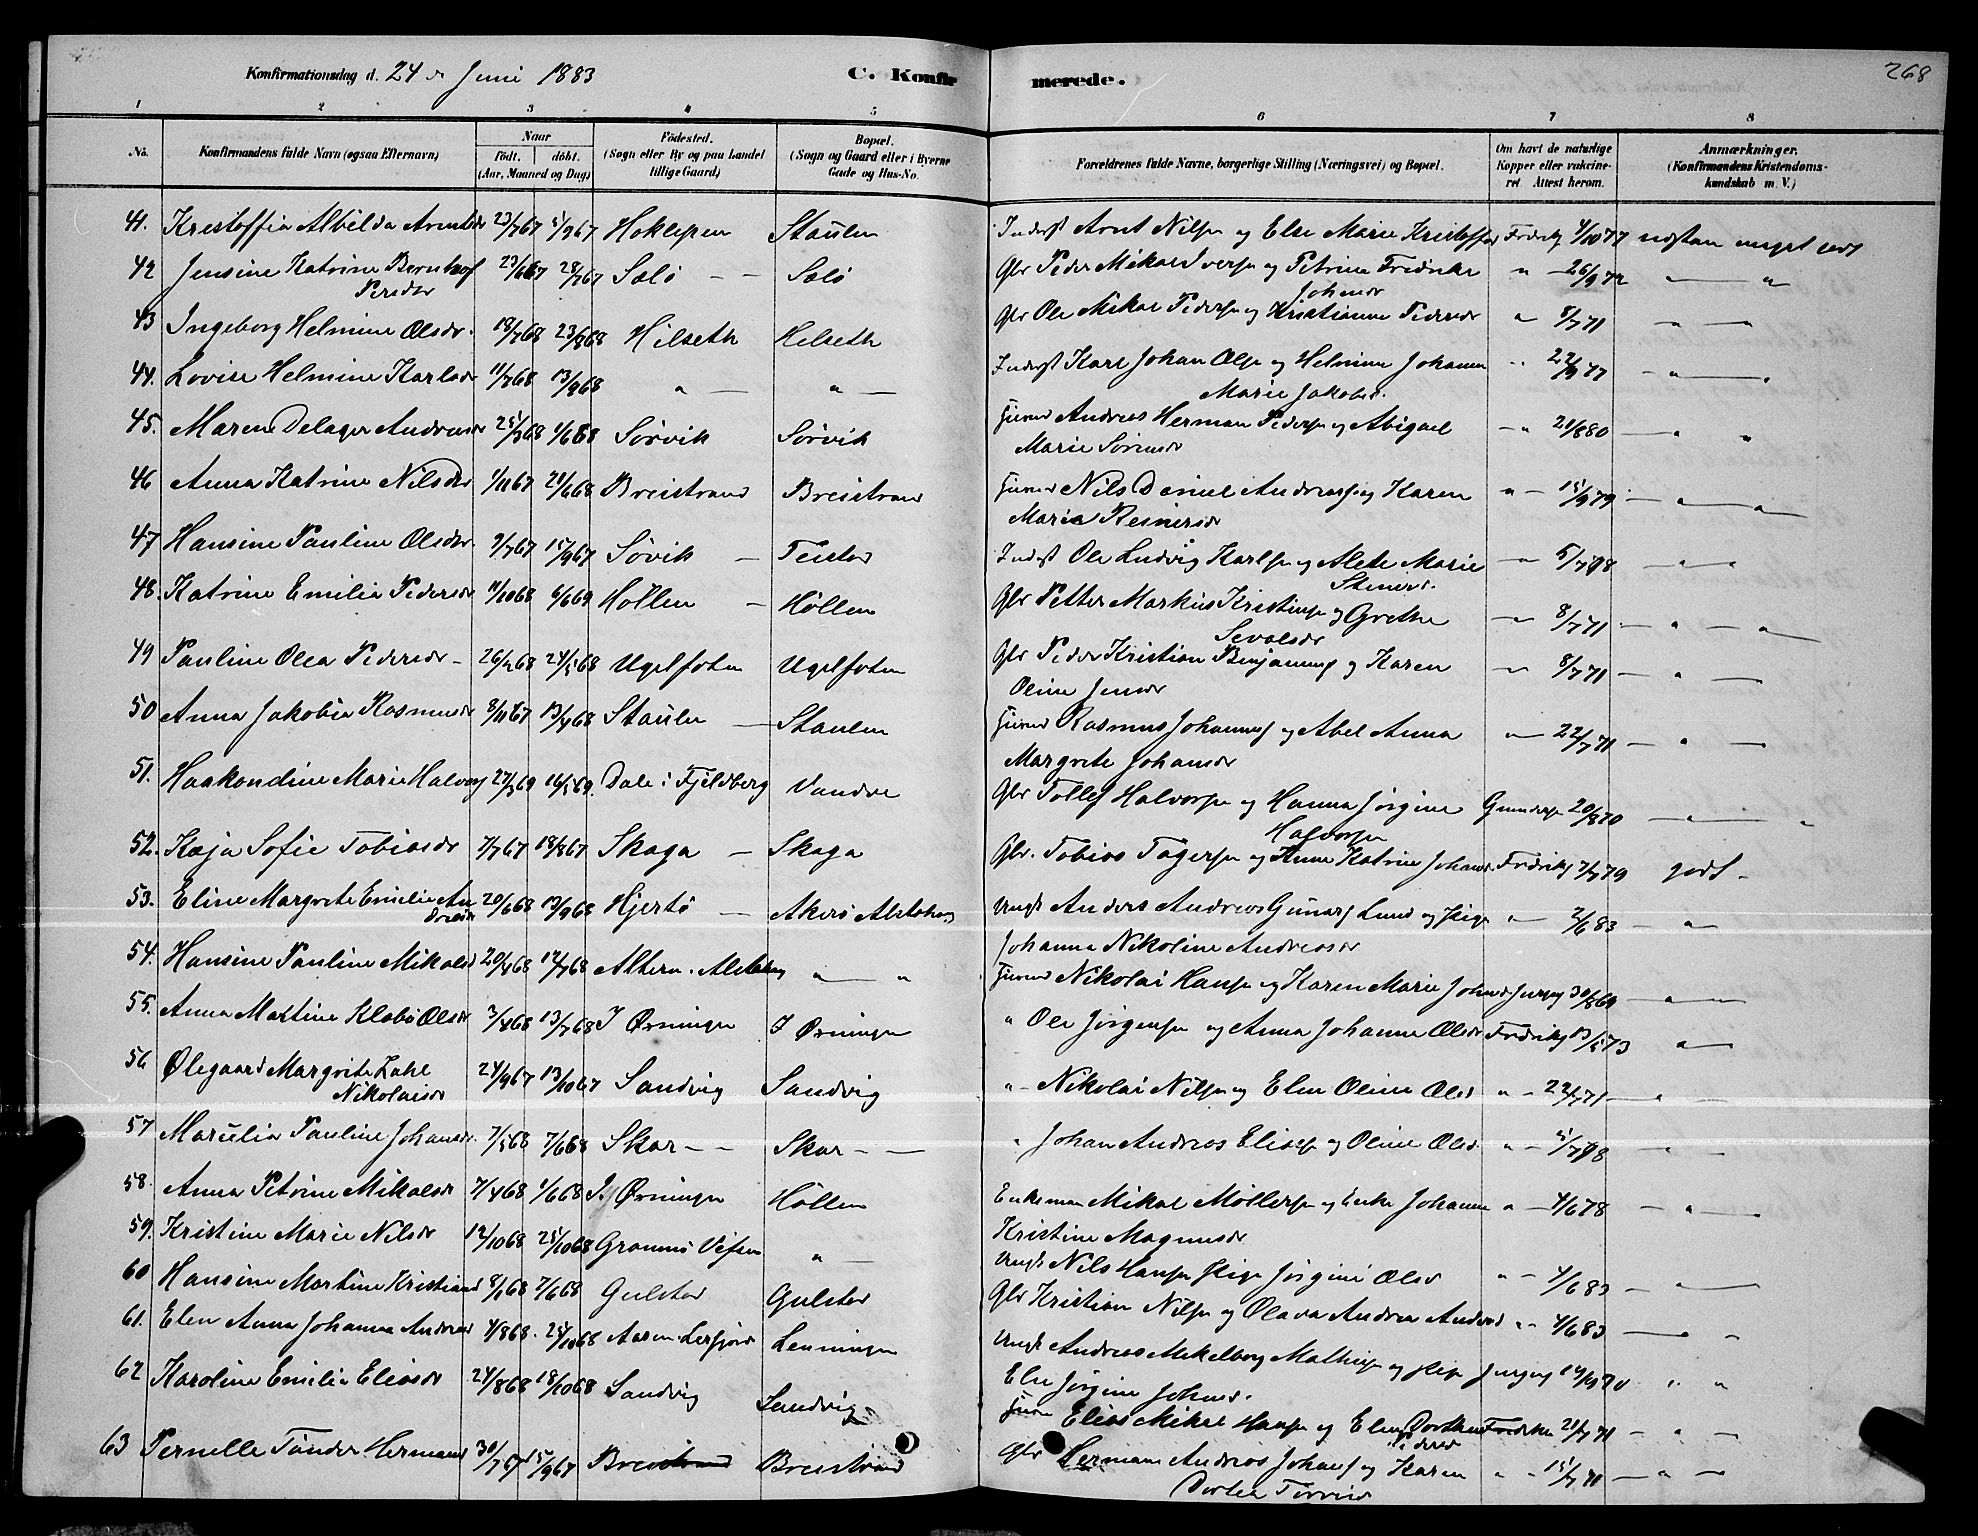 Konfirmationsdag d. 24 de Juni 1883
C. Konfirmerede.
268
1 2 3 4 5 6 7 8
No.
Konfirmandens fulde Navn (ogsaa Efternavn)
Naar
födt. döbt.
(Aar, Maaned og Dag)
Födested.
(Sogn eller By og paa Landet tillige Gaard)
Bopæl.
(Sogn og Gaard eller i Byerne Gade og Hus-No.
Forældrenes fulde Navne, borgerlige Stilling (Næringsvei) og Bopæl.
Om havt de naturlige Kopper eller vakcineret. Attest herom.
Anmærkninger.
(Konfirmandens Kristendomskundskab m. V.)
41. Kristoffia Albilda Arntsdr 23/7 67 5/9 67 Staulen Inderst Arnt Nilsen og Else Marie Kristoffer Fredriks 4/10 77 næsten meget godt
42 Jensine Katrine Bernhof Pedersdr 23/6 67 28/7 67 Salö — — Salö Gbr Peder Mikal Iversen og Petrine Fredrikke Johnsdr " — 26/9 72 — "
43 Ingeborg Helmine Olsdr. 18/7 68 23/8 68 Hilseth Helseth Gbr Ole Mikal Pedersen og Kristianna Pedersdr " 8/7 71 — " —
44. Lovise Helmine Karlsdr 11/7 68 13/9 68 " — " — Inderst Karl Johan Olsen og Helmine Johanna Marie Jakobsd. " 22/9 77 — " —
45. Maren Delager Andreasdr 25/3 68 1/6 68 Sörvik Sörvik Andreas Herman Pedersen og Abigael Marie Sörensdr — " 21/8 80 — " "
46 Anna Katrine Nilsdr 1/11 67 21/6 68 Breistrand Breistrand Nils Daniel Andreasen og Karen Marie Reinersdr " — 15/9 79 — " — " —
47 Hansine Pauline Olsdr. 9/7 67 15/9 67 Sövik — Inderst Ole Ludvig Karlsen og Alete Marie Steinersd. — " 5/7 78 — " —
48. Katrine Emilie Pedersdr 11/10 68 6/6 69 Höllen — Höllen Gbr Petter Markus Kristiansen og Grethe Sevalsdr — " 8/7 71 — " — " —
49 Pauline Olea Pedersdr — 26/2 68 24/5 68 Ugelfoten Ugelfoten Gbr Peder Kristian Benjaminsen og Karen Oline Jensdr — " 8/7 71 — " —
50 Anna Jakobia Rasmusdr 8/11 67 13/4 68 Staulen — Staulen Rasmus Johannesen og Abel Anna Margrete Johansdr " — 22/7 71 — " —
51. Haakondine Marie Halvors 27/3 69 16/5 69. Dale i Fjeldberg Vandve Gbr Tollef Halvorsen og Hanna Jörgine Halvorsen Gundersen 20/8 70 — " — "
52. Kaja Sofie Tobiasdr 7/7 67 18/8 67 Skaga — Skaga Gbr. Tobias Tögersen og Anne Katrine Johansd. Fredriks 7/7 79 godt —
53. Eline Margrete Emilie Andreasdr 20/6 68 13/9 68 Hjertö — Akerö Alstahaug Ungk Anders Andreas Gunars Lund og Pige Johanna Nikoline Andreasdr " — 2/6 83 — " —
54. Hansine Pauline Mikalsd 20/4 68 12/7 68 Altern Alstahaug " — " Nikolai Hansen og Karen Marie Johansd Jürgens 30/8 69 — " —
55. Anna Martine Klabö Olsdr 3/4 68 13/7 68 I Örningen I Örningen " Ole Jörgensen og Anna Johanna Olsdr Fredriks 13/5 73 " —
56 Ölegaard Margrete Zahl Nikolaisdr 24/9 67 13/10 67 Sandvig Sandvig " — Nikolai Nilsen og Elen Oline Olsd " — 22/7 71 — " —
57 Marselia Pauline Johansdr. 7/5 68 7/6 68 Skar — — Skar — — " Johan Andreas Elisen og Oline Olsd " — 5/7 78 — " —
58. Anna Petrine Mikalsdr 7/4 68 1/6 68 I Örningen Höllen Enkemand Mikal Möllersen og Enke Johanna Kristine Magnusdr " — 4/6 78 — " —
59. Kristine Marie Nilsdr 12/10 68 25/10 68 Vefsen " — Ungk Nils Hansen Pige Jörgine Olsd " — 4/6 83 — " —
60 Hansine Martine Kristiansd 8/1 68 7/6 68 Gulstad Gulstad Gbr Kristian Nilsen og Olava Andrea Andersd " " 4/6 83 — " —
61. Elen Anna Johanna Andreasd 4/8 68. 25/10 68 Leinningen Ungk Andreas Mekelborg Mathisen og Pige Else Jörgine Johnsd. Jürgens 14/10 70 " "
62 Karoline Emilie Eliasdr 24/8 68 18/10 68 Sandvig Sandvig Elias Mikal Hansen og Elen Dorthea Pedersd Fredriks 21/7 71 — " —
63 Pernelle Tönder Hermansd 30/7 67 15/9 67 Breistrand Breistrand Gbr Herman Andreas Johans og Karen Dortea " " 15/7 71 — " —